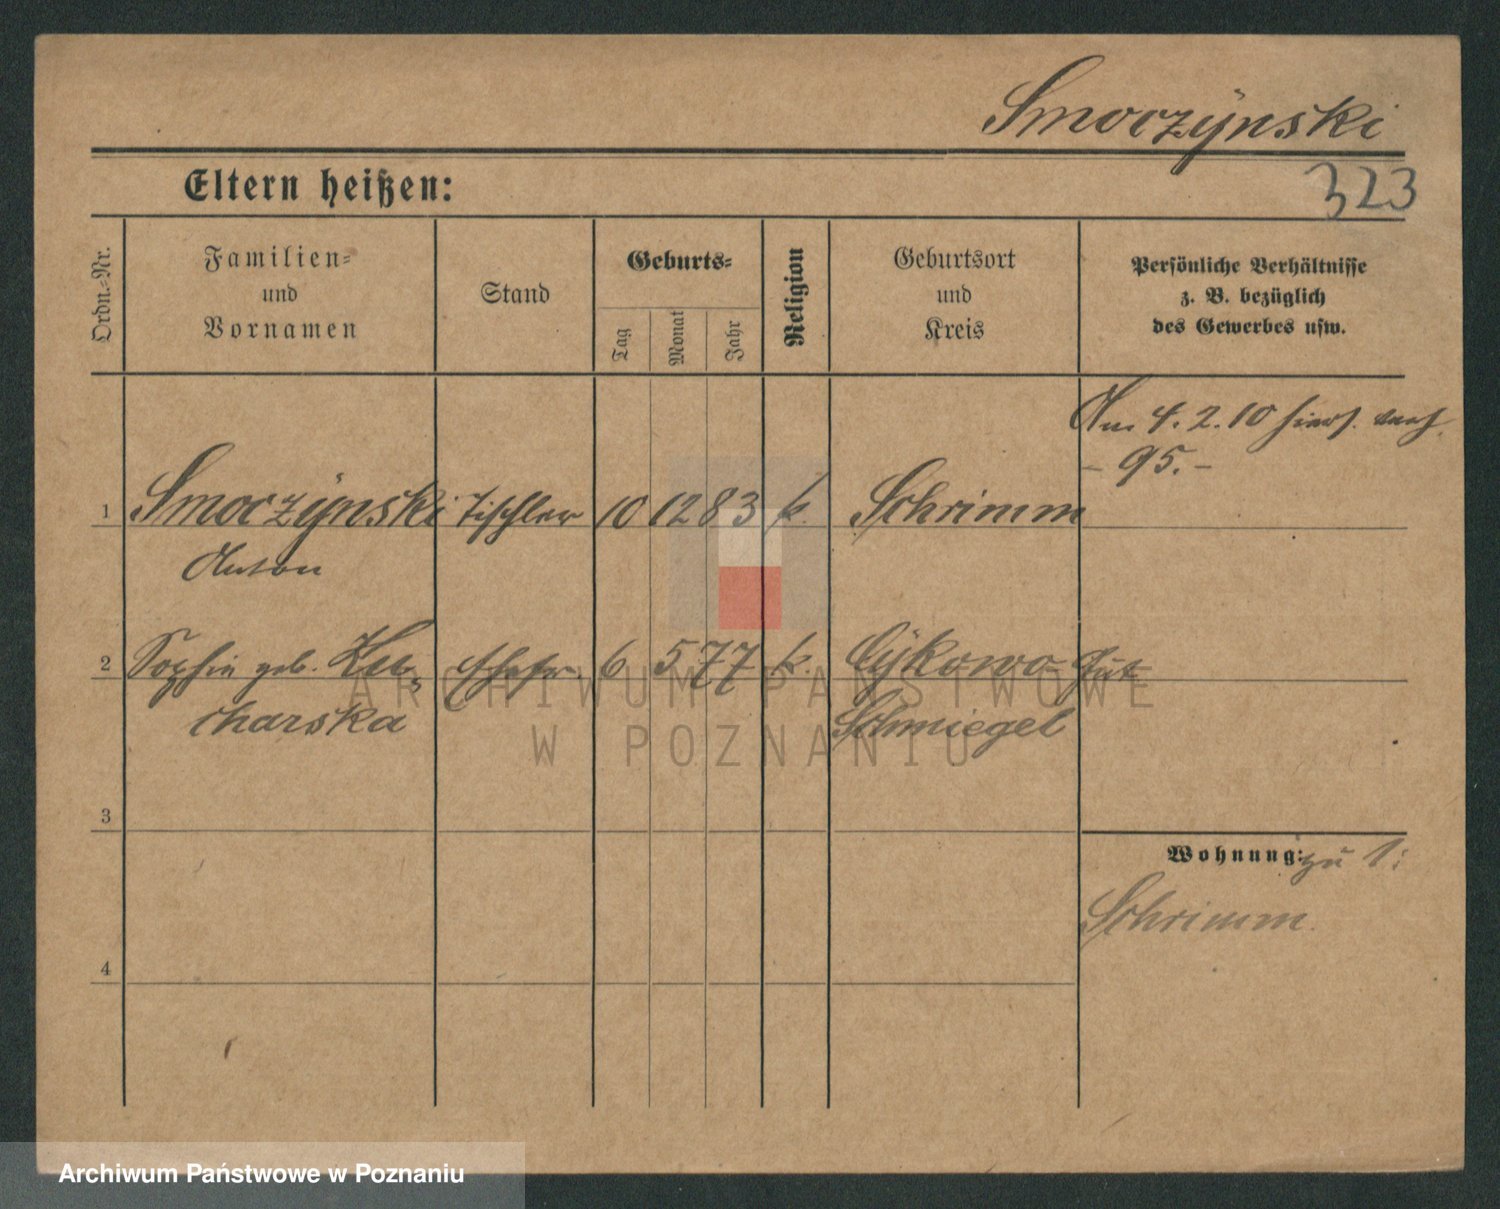 Smoczynski
323
Eltern heißen:
Ordn.-Nr.
Familien-
und
Vornamen
Stand
Geburts-
Tag
Monat
Jahr
Religion
Geburtsort
und
Kreis
Persönliche Verhältnisse
z. B. bezüglich
des Gewerbes usw.
Am 4. 2. 10
- 95. -
1 Smoczynski Tischler 10 12 83 k. Schrimm
Anton
2 Sophie geb. Ku- Ehefr. 6 5 77 k. Gut
charska Schmiegel
3
Wohnung: zu 1:
Schrimm.
4
ARCHIWUM PAŃSTWOWE
W POZNANIU
Archiwum Państwowe w Poznaniu